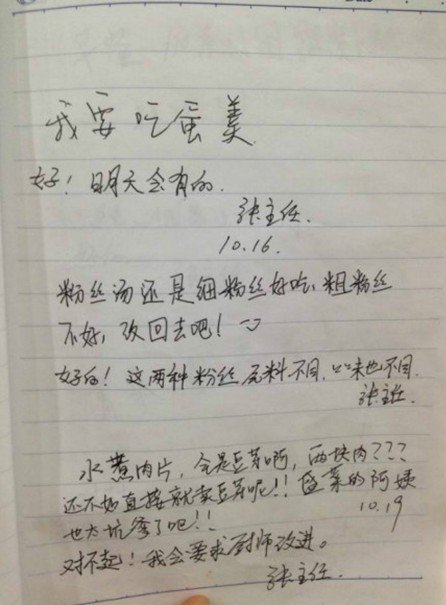 我要吃蛋羹
好！明天会有的.
张主任.
10.16.
粉丝汤还是细粉丝好吃、粗粉丝
不好，改回去吧！
好的！这两种粉丝原料不同，口味也不同.
张主任.
水煮肉片，全是豆芽啊，两块肉???
还不如直接就卖豆芽呢!! 盛菜的阿姨
10.19
也太坑爹了吧!!
对不起！我会要求厨师改进。
张主任.